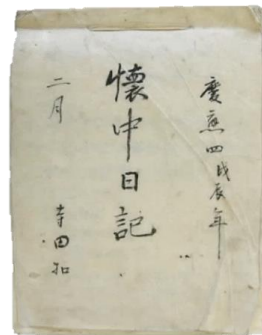 慶應四戊辰年
懐中日記
二月
寺田